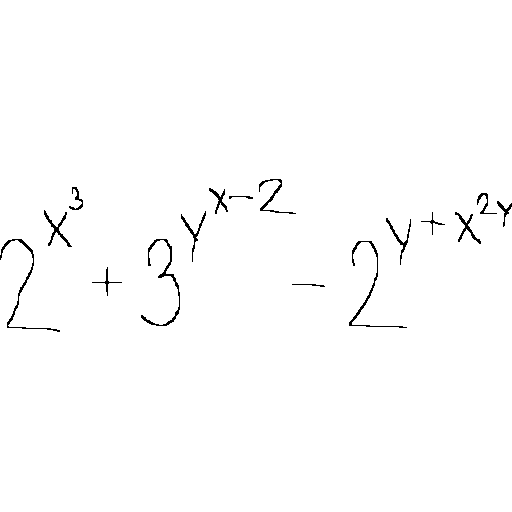 2^{x^3} + 3^{y^{x-2}} - 2^{y+x^{2y}}